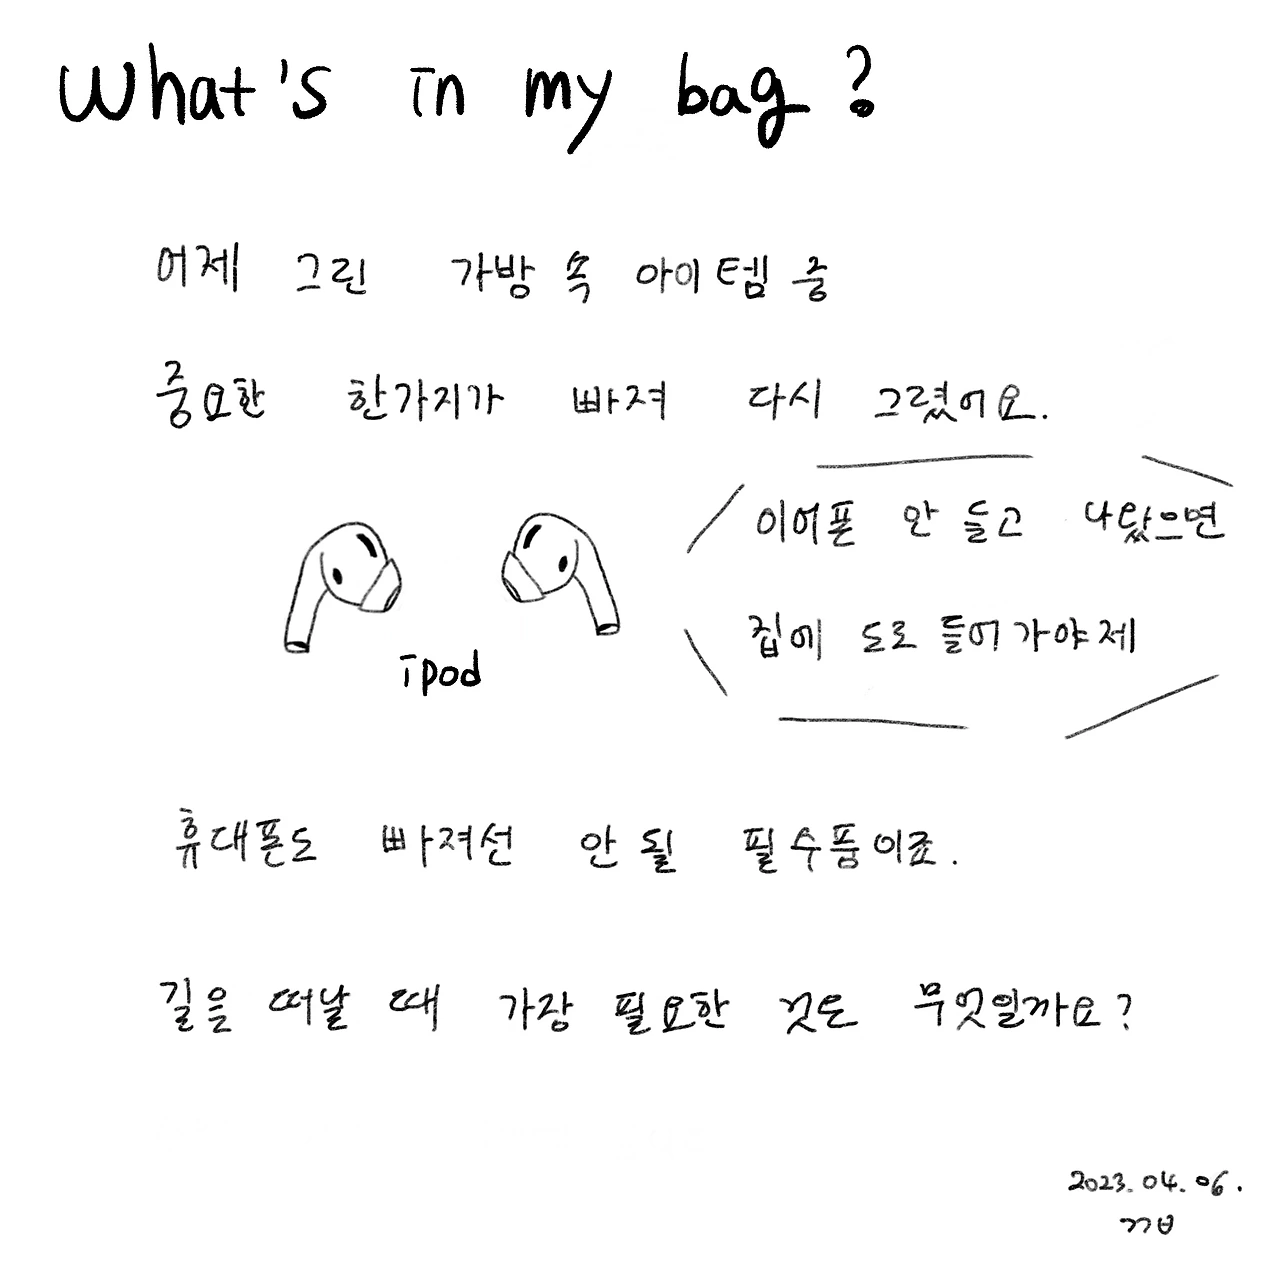 What's in my bag?
어제 그린 가방 속 아이템 중
중요한 한가지가 빠져 다시 그렸어요.
이어폰 안 들고 나왔으면
집에 도로 들어가야제
ipod
휴대폰도 빠져선 안 될 필수품이죠.
길을 떠날 때 가장 필요한 것은 무엇일까요?
2023.04.06.